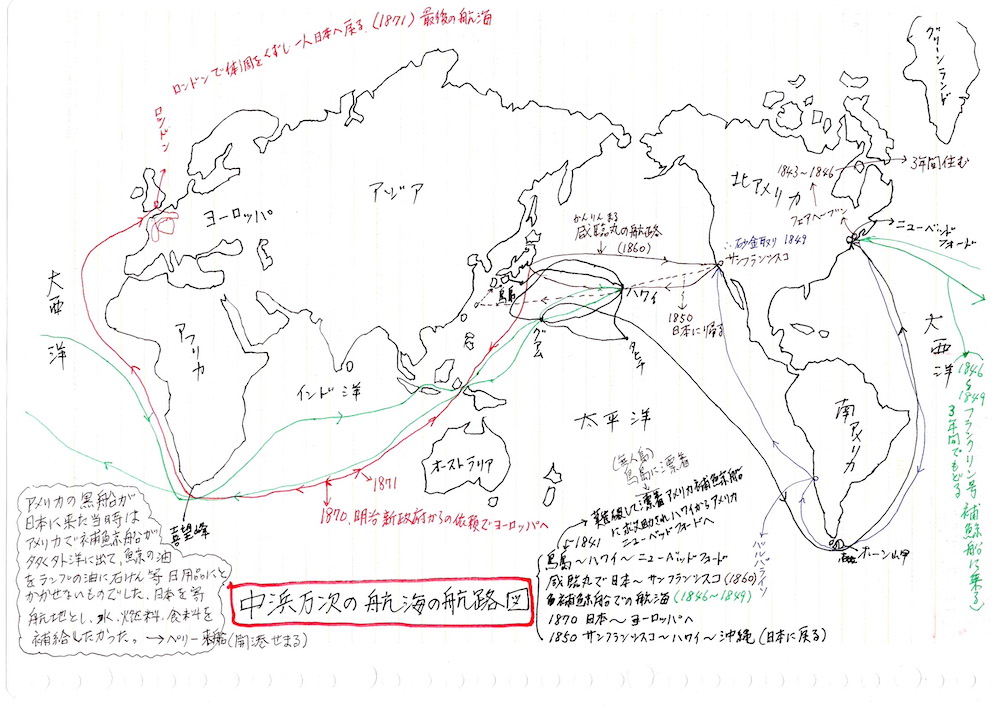 ロンドンで体調をくずし一人日本へ戻る(1871) 最後の航海
ロンドン
グリーンランド
アジア
ヨーロッパ
北アメリカ
1843〜1846
3年間住む
フェアヘーブン
ニューベッド
フォード
かんりんまる
咸臨丸の航路
(1860)
∴砂金取り 1849
サンフランシスコ
大西洋
鳥島
ハワイ
1850
日本に帰る
グアム
タヒチ
アフリカ
インド洋
太平洋
大西洋
南アメリカ
オーストラリア
1846
〜
1849
フランクリン号 捕鯨船に乗る
3年間でもどる
1871
1870 明治新政府からの依頼でヨーロッパへ
喜望峰
バルパライソ
ホーン岬
(無人島)
鳥島に漂着
難破して漂着アメリカ捕鯨船
に救助されハワイからアメリカ
ニューベッドフォードへ
1841
鳥島〜ハワイ〜ニューベッドフォード
咸臨丸で日本〜サンフランシスコ(1860)
捕鯨船での航海(1846〜1849)
1870 日本〜ヨーロッパへ
1850 サンフランシスコ〜ハワイ〜沖縄(日本に戻る)
アメリカの黒船が
日本に来た当時は
アメリカで捕鯨船が
タクタト洋に出て、鯨の油
をランプの油に石けん等 日用品にと
かかせないものでした、日本を寄
航地とし、水、燃料、食料を
補給したかった。→ペリー来船(開港せまる)
中浜万次の航海の航路図